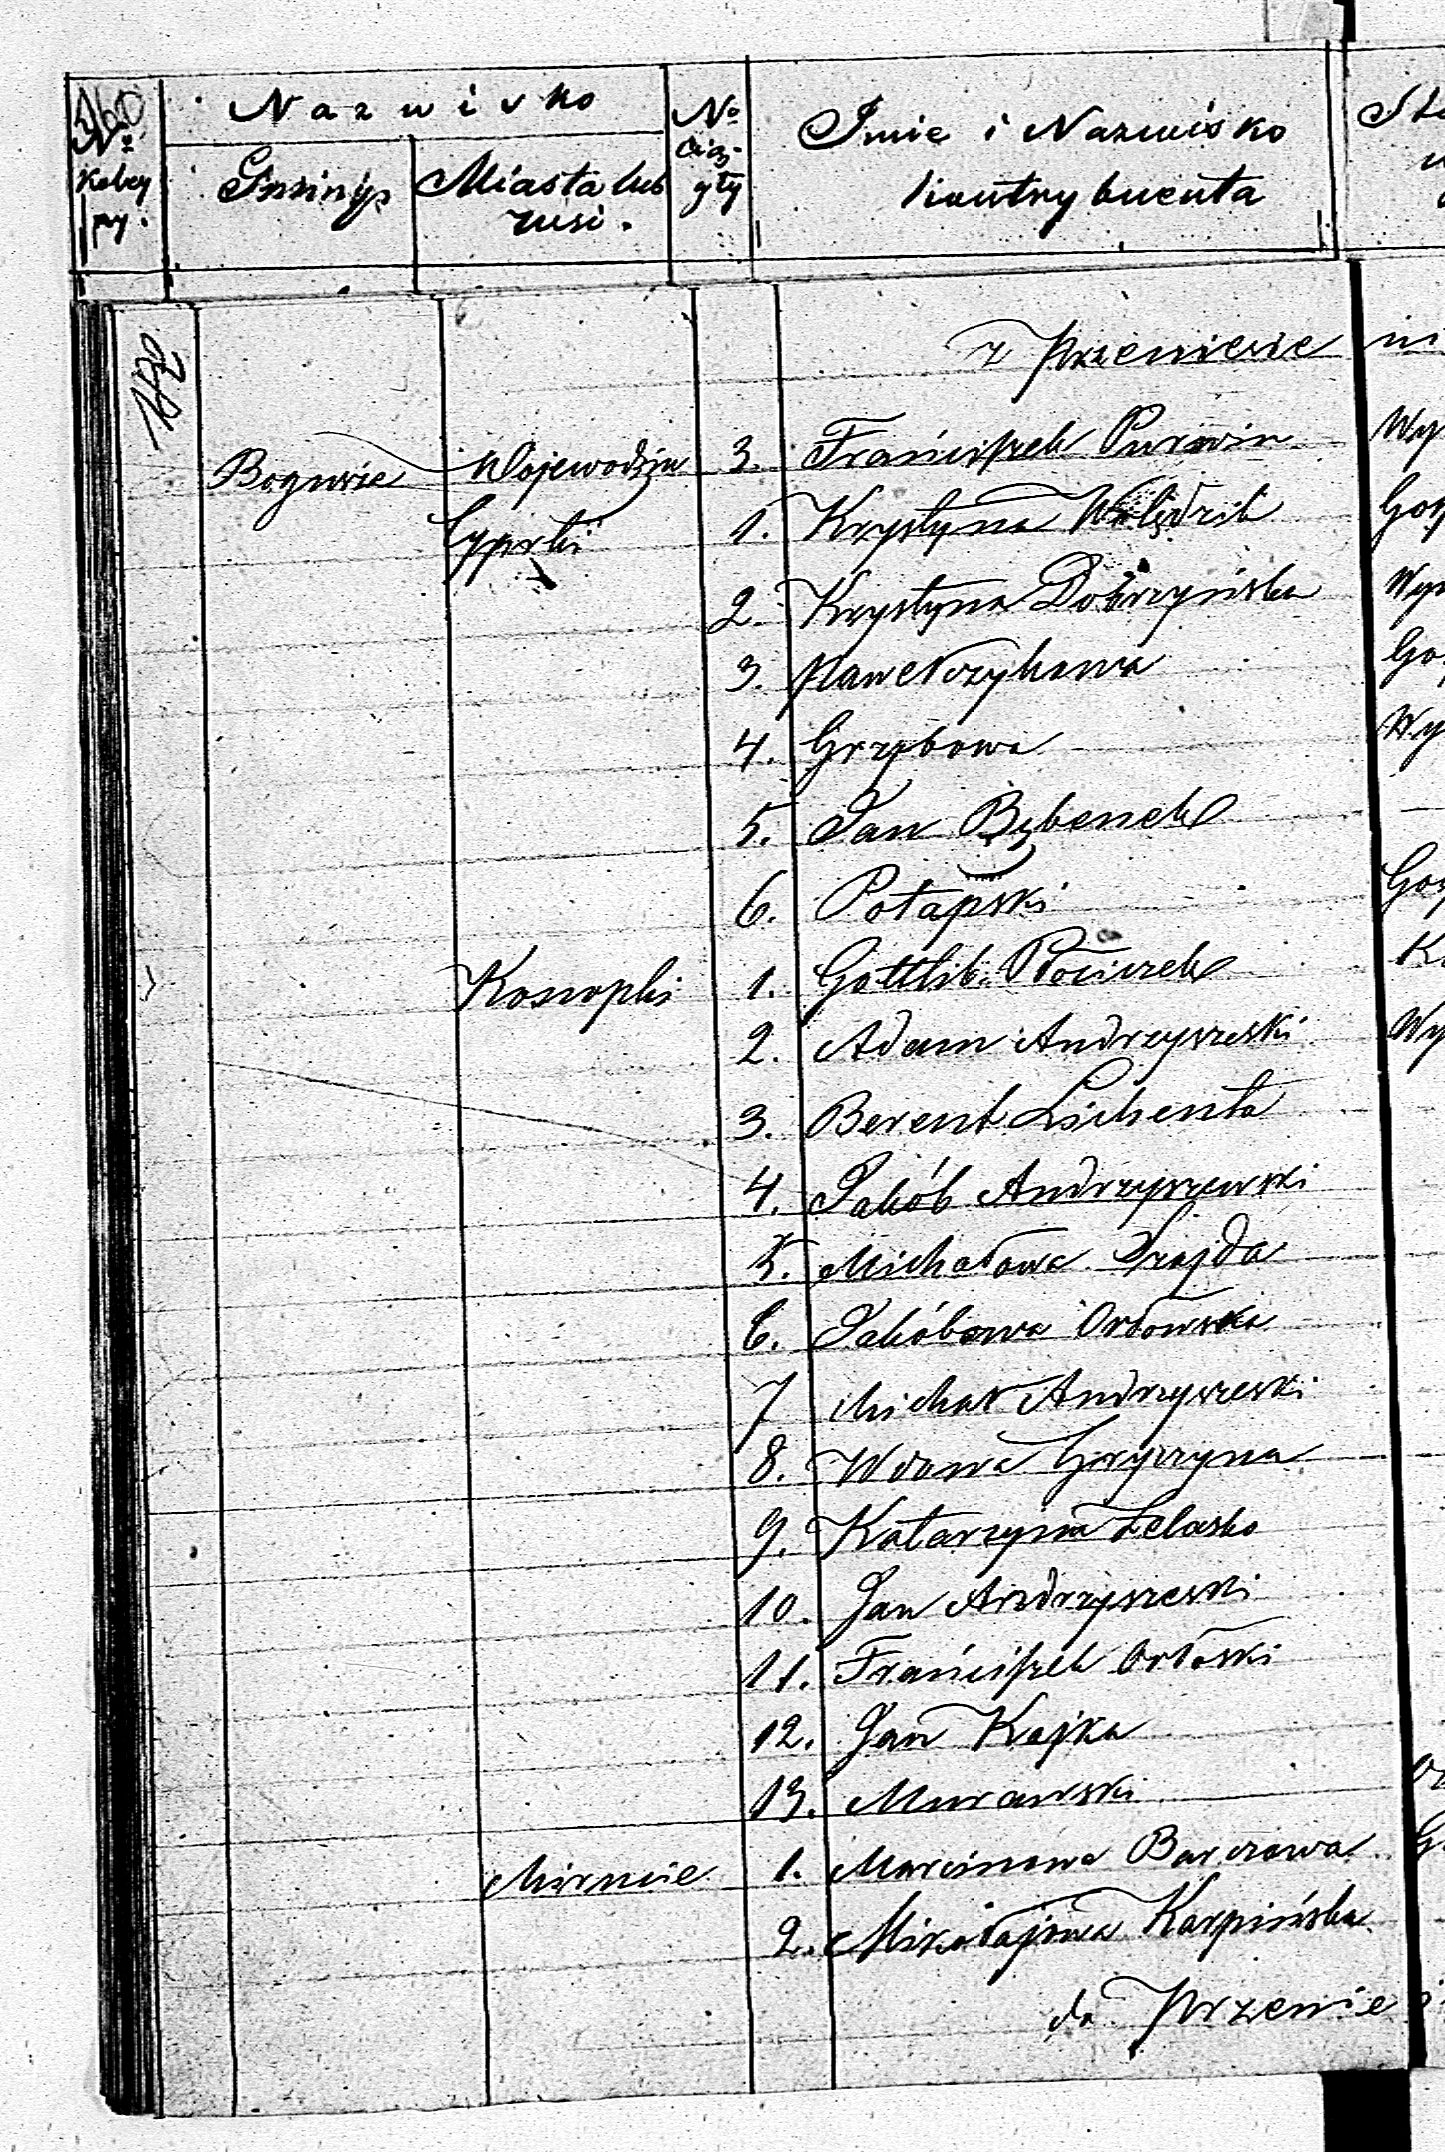 Nazwisko
Gminy Miasta lub wsi.
No ciągły
Imie i Nazwisko kontrybuenta
z Przeniesie
Bogusze Wojewodzin 3. Franciszek Purwin Wy
Cyprki 1. Krystyna
2. Krystyna Dobrzyńska
3. Pawełczykowa
4. Grzybowa Wy
5. Jan Bębenek
6. Potapski
Konopki 1. Gottlib
2. Adam Andrzyszeski Wy
3. Berent
4. Jakób Andrzyszewski
5. Michałowa Szajda
6. Jakóbowa Orłowska
7 Michał Andrzyszeski
8. Wdowa Gryczyna
9. Katarzyna Żelasko
10. Jan Andrzyszeski
11. Franciszek Orłoski
12. Jan Kajka
13. Murawski
Mirucie 1. Marcinowa Barczowa
2. Mikołajowa Karpińska
do Przenie